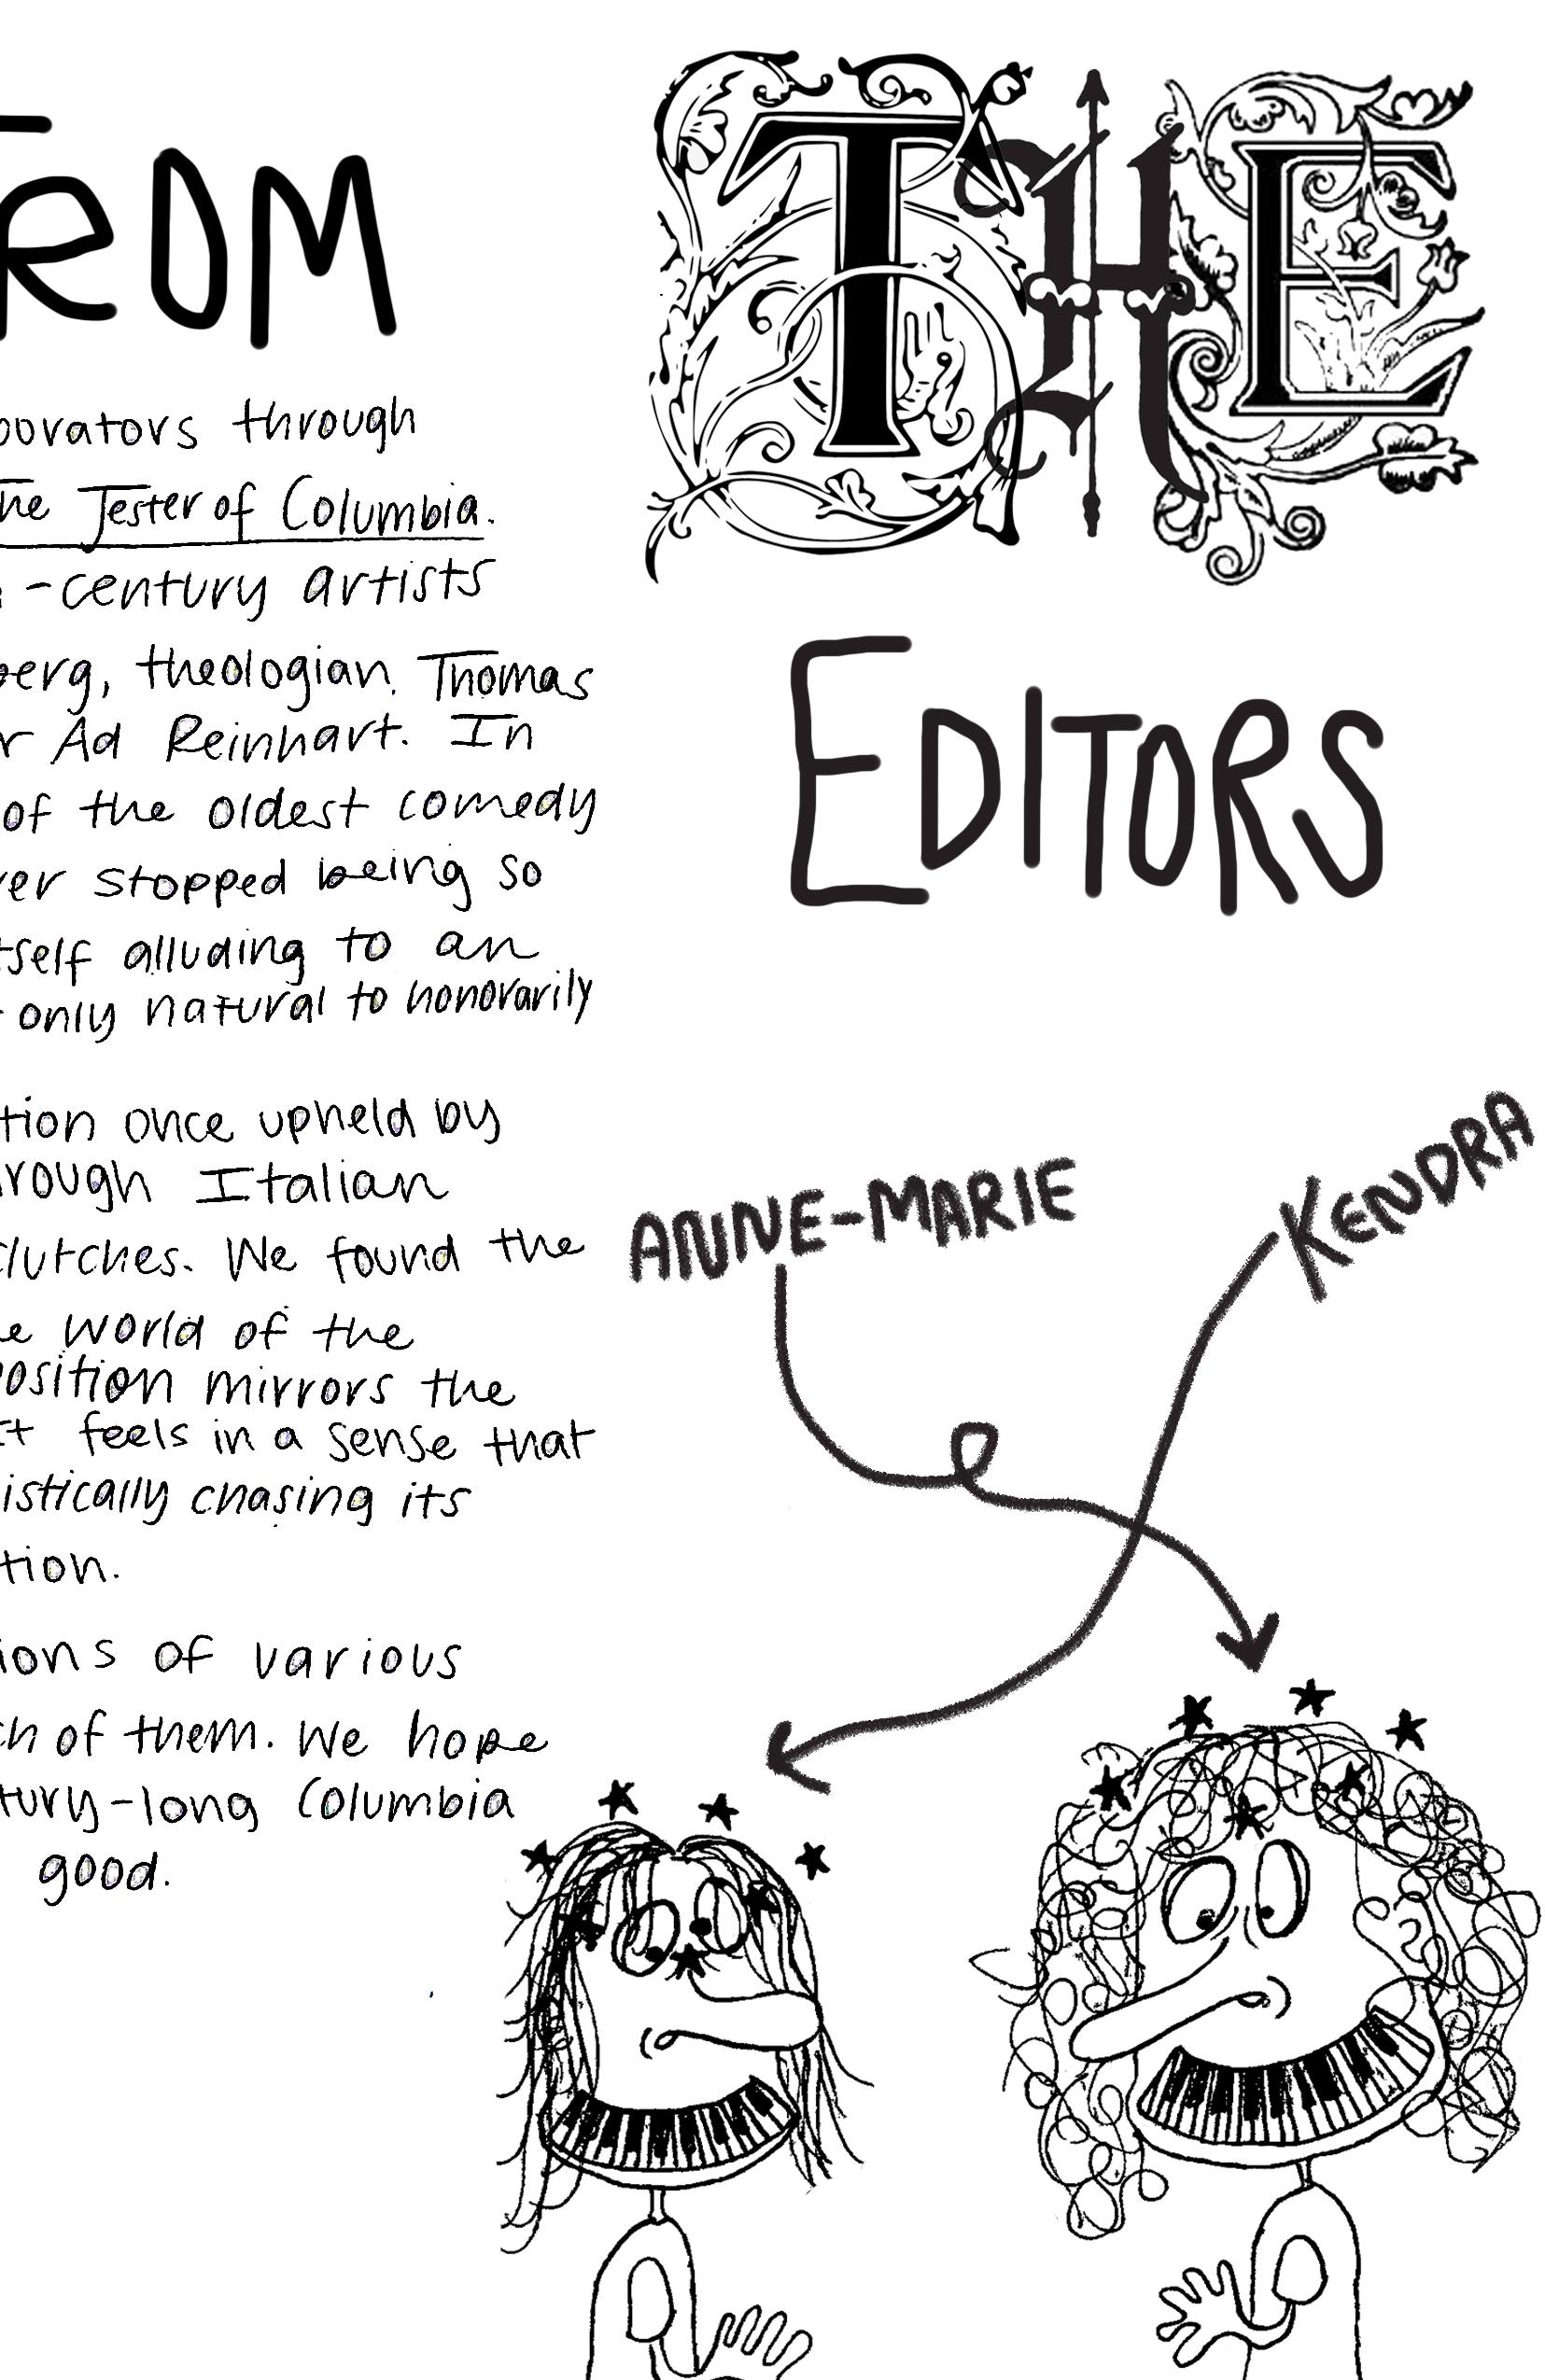 ROM THE
EDITORS
borators through
The Jester of Columbia.
-century artists
berg, theologian Thomas
r Ad Reinhart. In
of the oldest comedy
ver stopped being so
tself alluding to an
only natural to honorarily
tion once upheld by
rough Italian
clutches. We found the
e world of the
position mirrors the
It feels in a sense that
istically chasing its
tion.
ions of various
ch of them. We hope
tury-long Columbia
good.
ANNE-MARIE
KENDRA